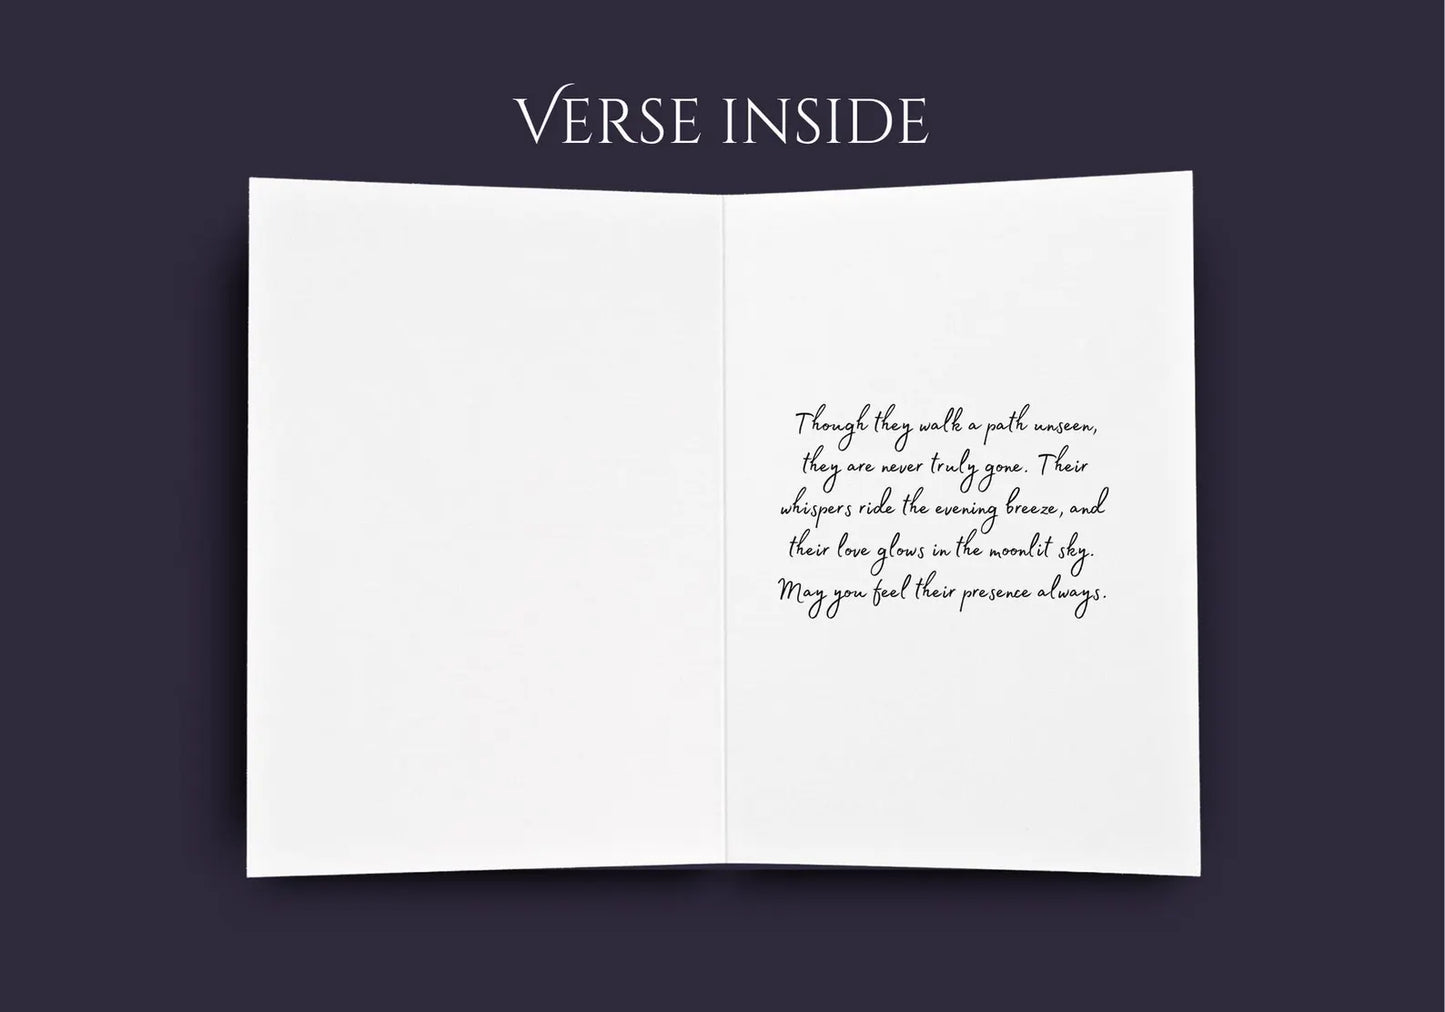 VERSE INSIDE
Though they walk a path unseen,
they are never truly gone. Their
whispers ride the evening breeze, and
their love glows in the moonlit sky.
May you feel their presence always.